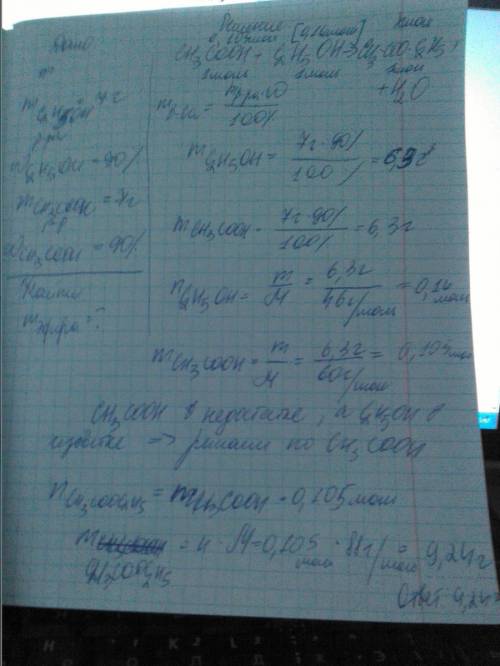 Дано
m C2H5OH 7г
р-ра
ωC2H5OH = 90%
mCH3COOH = 7г
р-р
ωCH3COOH = 90%
Найти
mэфира = ?
Решение
0,105моль [0,14моль] xмоль
CH3COOH + C2H5OH → CH3-COO-C2H5 +
1моль 1моль 1моль
+ H2O
mв-ва = mр-ра·ω / 100%
mC2H5OH = 7г·90% / 100% = 6,3г
mCH3COOH = 7г·90% / 100% = 6,3г
nC2H5OH = m/M = 6,3г / 46г/моль = 0,14 моль
mCH3COOH = m/M = 6,3г / 60г/моль = 0,105моль
CH3COOH в недостатке, а C2H5OH в
избытке => решаем по CH3COOH
nCH3COOC2H5 = mCH3COOH = 0,105 моль
m = n · M = 0,105 моль · 88г/моль = 9,24г
CH3COOC2H5
Ответ 9,24г